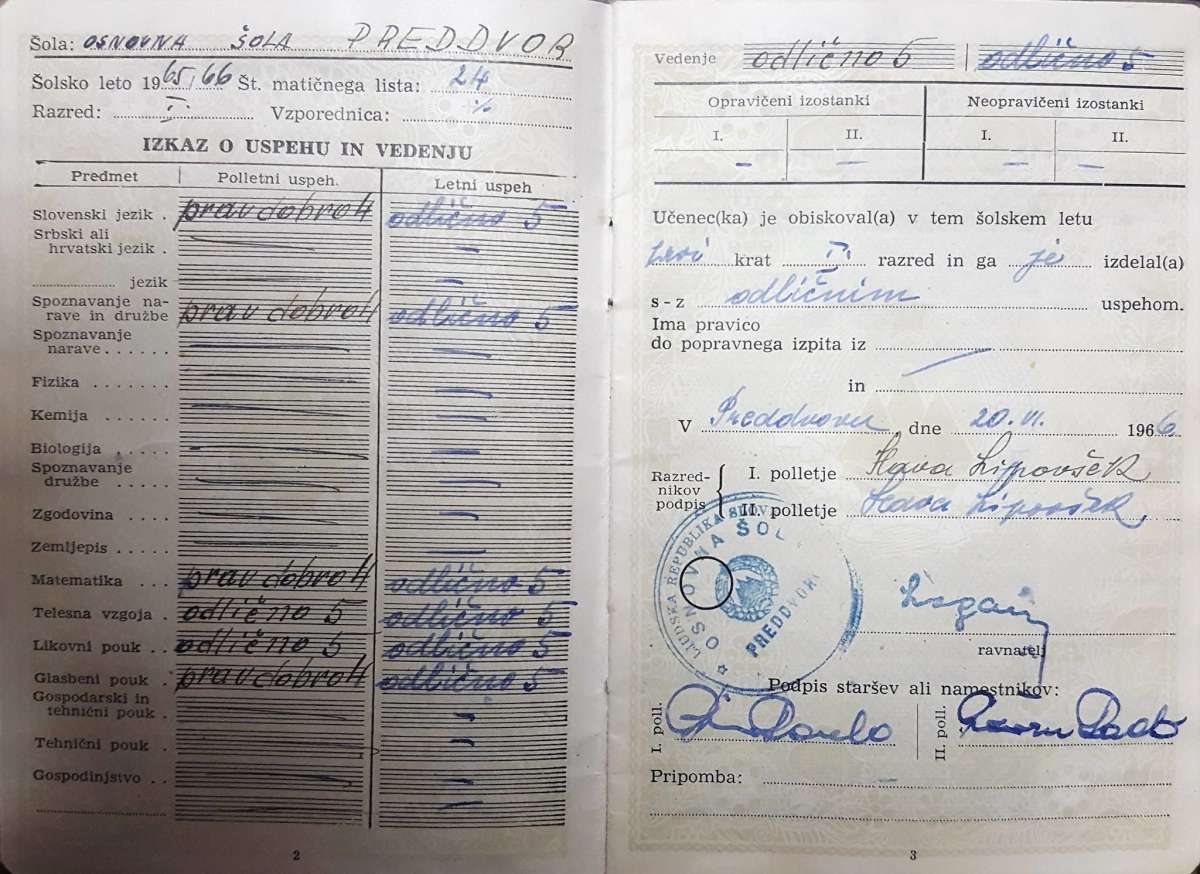 Šola: OSNOVNA ŠOLA PREDDVOR
Šolsko leto 1965/66 Št. matičnega lista: 24
Razred: I. Vzporednica: %
IZKAZ O USPEHU IN VEDENJU
Predmet Polletni uspeh. Letni uspeh
Slovenski jezik . prav dobro 4 odlično 5
Srbski ali
hrvatski jezik . — —
jezik —
Spoznavanje na-
rave in družbe prav dobro 4 odlično 5
Spoznavanje
narave . . . . . . — —
Fizika . . . . . . . — —
Kemija . . . . . . — —
Biologija . . . . . - —
Spoznavanje
družbe . . . . . . — —
Zgodovina . . . . — —
Zemljepis . . . . . — —
Matematika . . . prav dobro 4 odlično 5
Telesna vzgoja . odlično 5 odlično 5
Likovni pouk . . odlično 5 odlično 5
Glasbeni pouk . prav dobro 4 odlično 5
Gospodarski in
tehnični pouk . — —
Tehnični pouk . — —
Gospodinjstvo . . — —
— —
2
Vedenje odlično 5 odlično 5
Opravičeni izostanki Neopravičeni izostanki
I. II. I. II.
— — — —
Učenec(ka) je obiskoval(a) v tem šolskem letu
prvi krat I. razred in ga je izdelal(a)
s - z odličnim uspehom.
Ima pravico
do popravnega izpita iz
in
V Preddvoru, dne 20. VI. 1966
Razred-
nikov
podpis
I. polletje Slava Lipovšek
II. polletje Slava Lipovšek
LJUDSKA REPUBLIKA SLOVE
OSNOVNA ŠOL
PREDDVOR
ravnatelj
Podpis staršev ali namestnikov:
I. poll. II. poll.
Pripomba: —
3